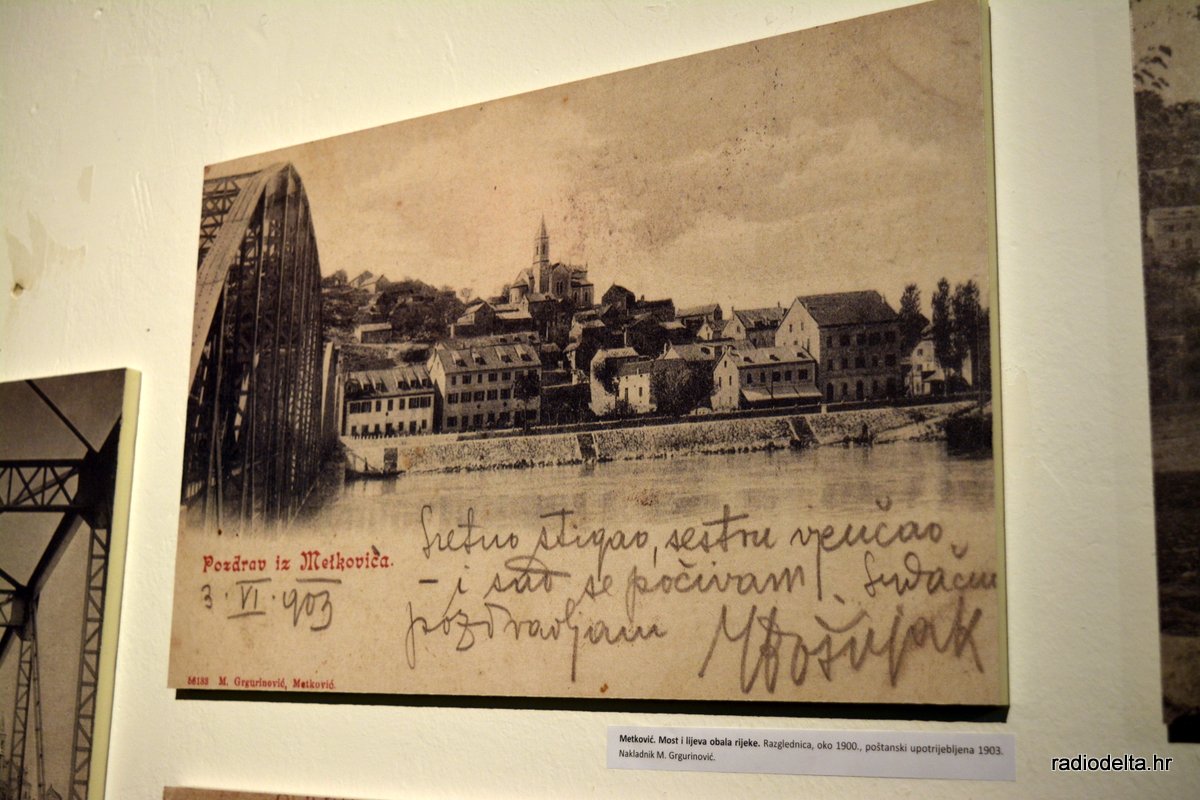 Pozdrav iz Metkovića.
3. VI. 903
Sretno stigao, sestru vjenčao,
– i sad se počivam! Srdačno
pozdravljam
56183 M. Grgurinović, Metković.
Metković. Most i lijeva obala rijeke. Razglednica, oko 1900., poštanski upotrijebljena 1903.
Nakladnik M. Grgurinović.
radiodelta.hr